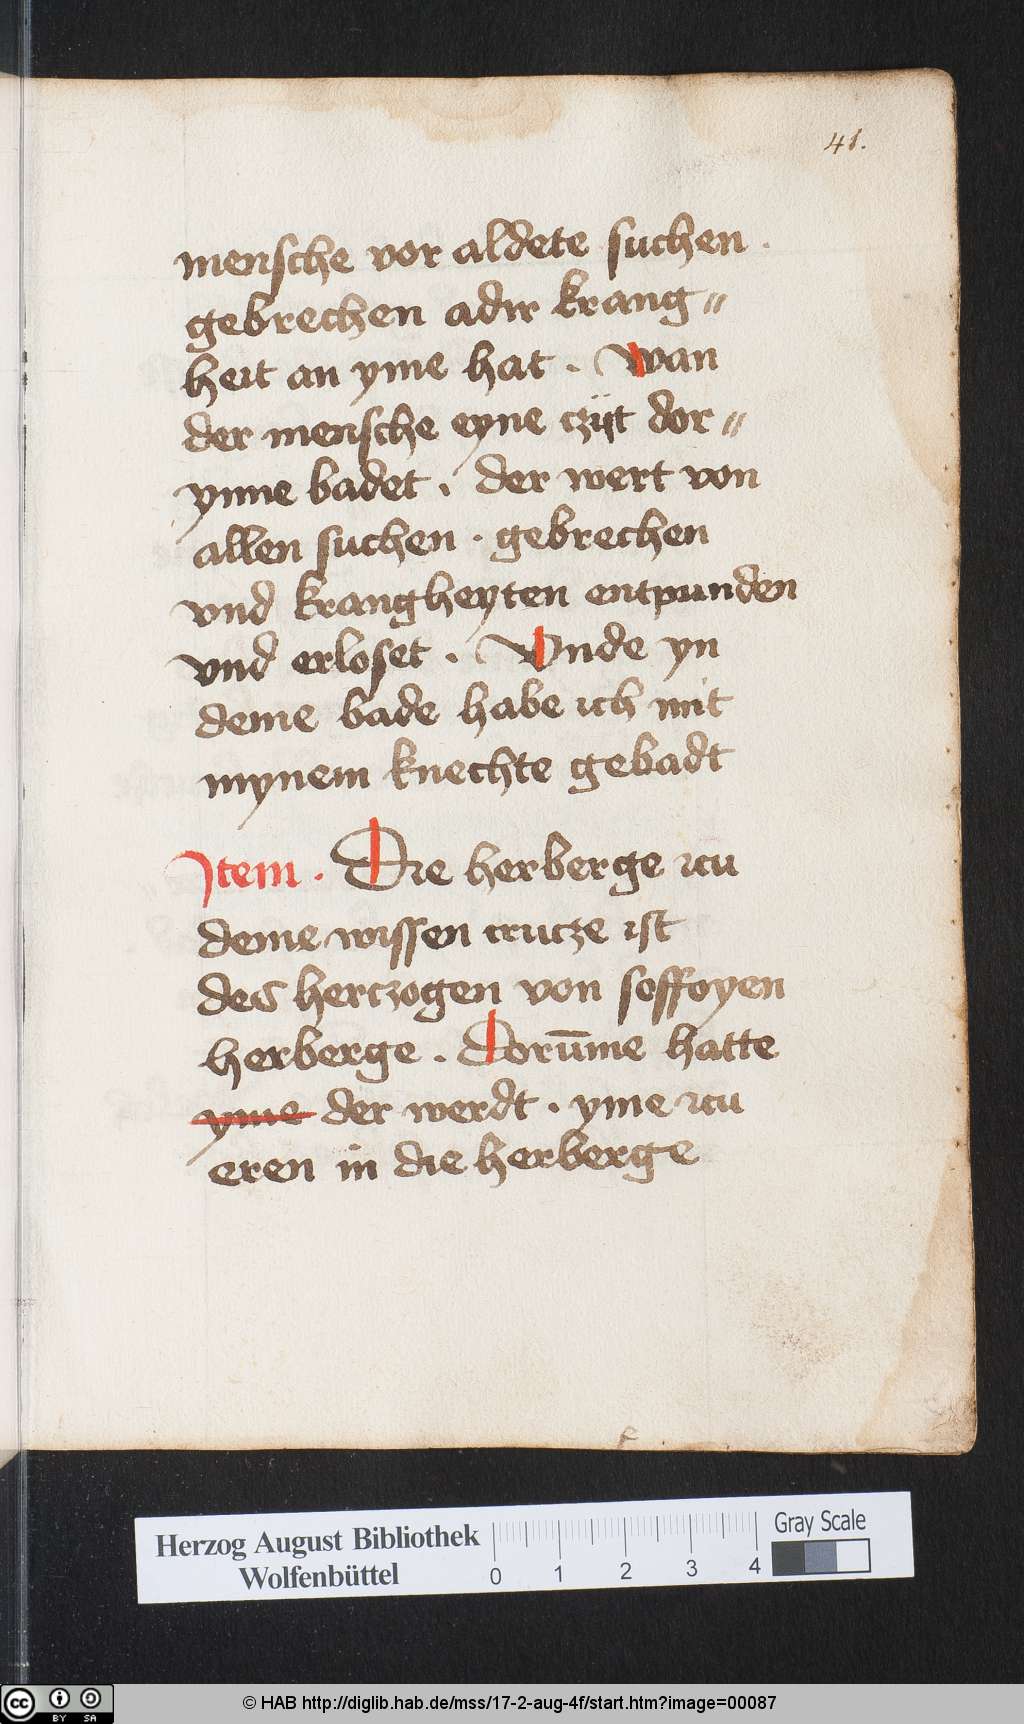 41.
mensche vor aldete suchen .
gebrechen adir krang〃
heit an yme hat . Wan
der mensche eyne czijt dor〃
ynne badet . der wert von
allen suchen . gebrechen
vnd krangheyten entpunden
vnd erloset . Vnde yn
deme bade habe ich mit
mynem knechte gebadt
Item . Die herberge zcu
deme wissen crucze ist
des herczogen von soffoyen
herberge . Dorūme hatte
yme der werdt . yme zcu
eren in die herberge
Herzog August Bibliothek
Wolfenbüttel
0 1 2 3 4
Gray Scale
cc BY SA
© HAB http://diglib.hab.de/mss/17-2-aug-4f/start.htm?image=00087